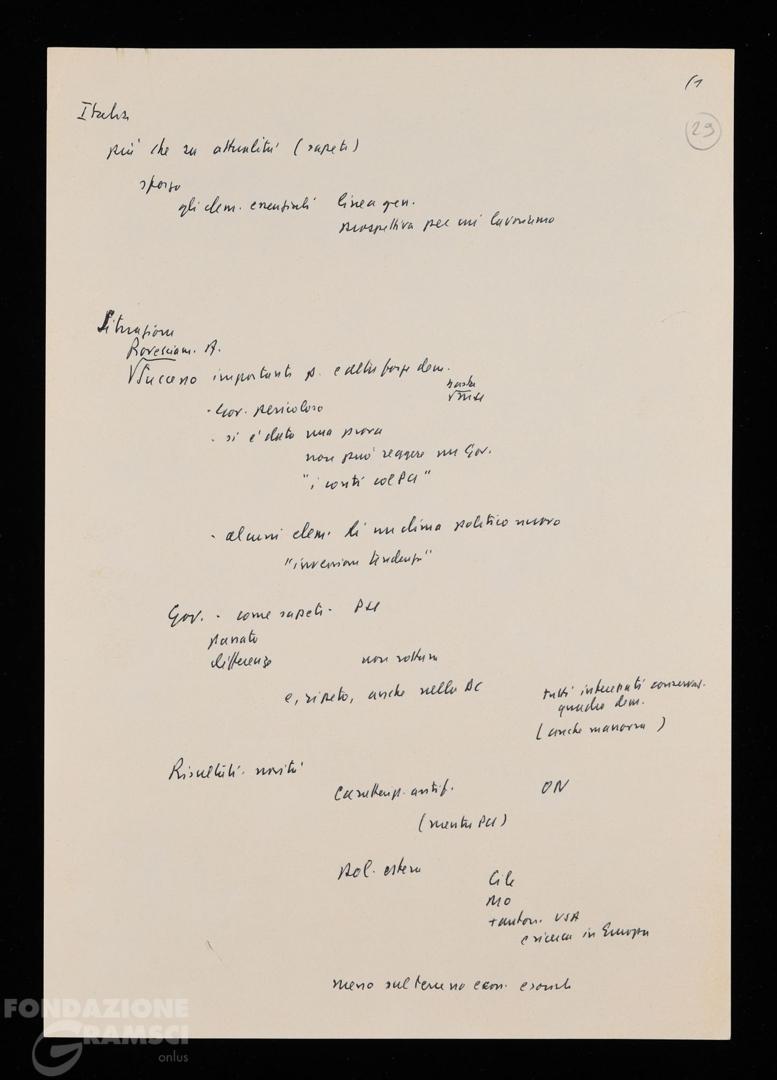 (1
29
Italia
più che su attualità (sapete)
sforzo
gli elem. essenziali linea gen.
prospettiva per cui lavoriamo
Situazione
Rovesciam. A.
Successo importante p. e altre forze dem.
nostra
· Gov. pericoloso
· si è data una prova
non può reggere un Gov.
"i conti col PCI"
· alcuni elem. di un clima politico nuovo
"inversione tendenza"
Gov. - come sapete - PSI
passato
differenze non rottura
e, ripeto, anche nella DC tutti interessati conservaz.
quadro dem.
(anche manovra)
Risultati - novità
Caratterizz. antif. ON
(mentre PCI)
pol. estera Cile
MO
+ auton. USA
e ricerca in Europa
meno sul terreno econ. e sociale
FONDAZIONE
GRAMSCI
onlus